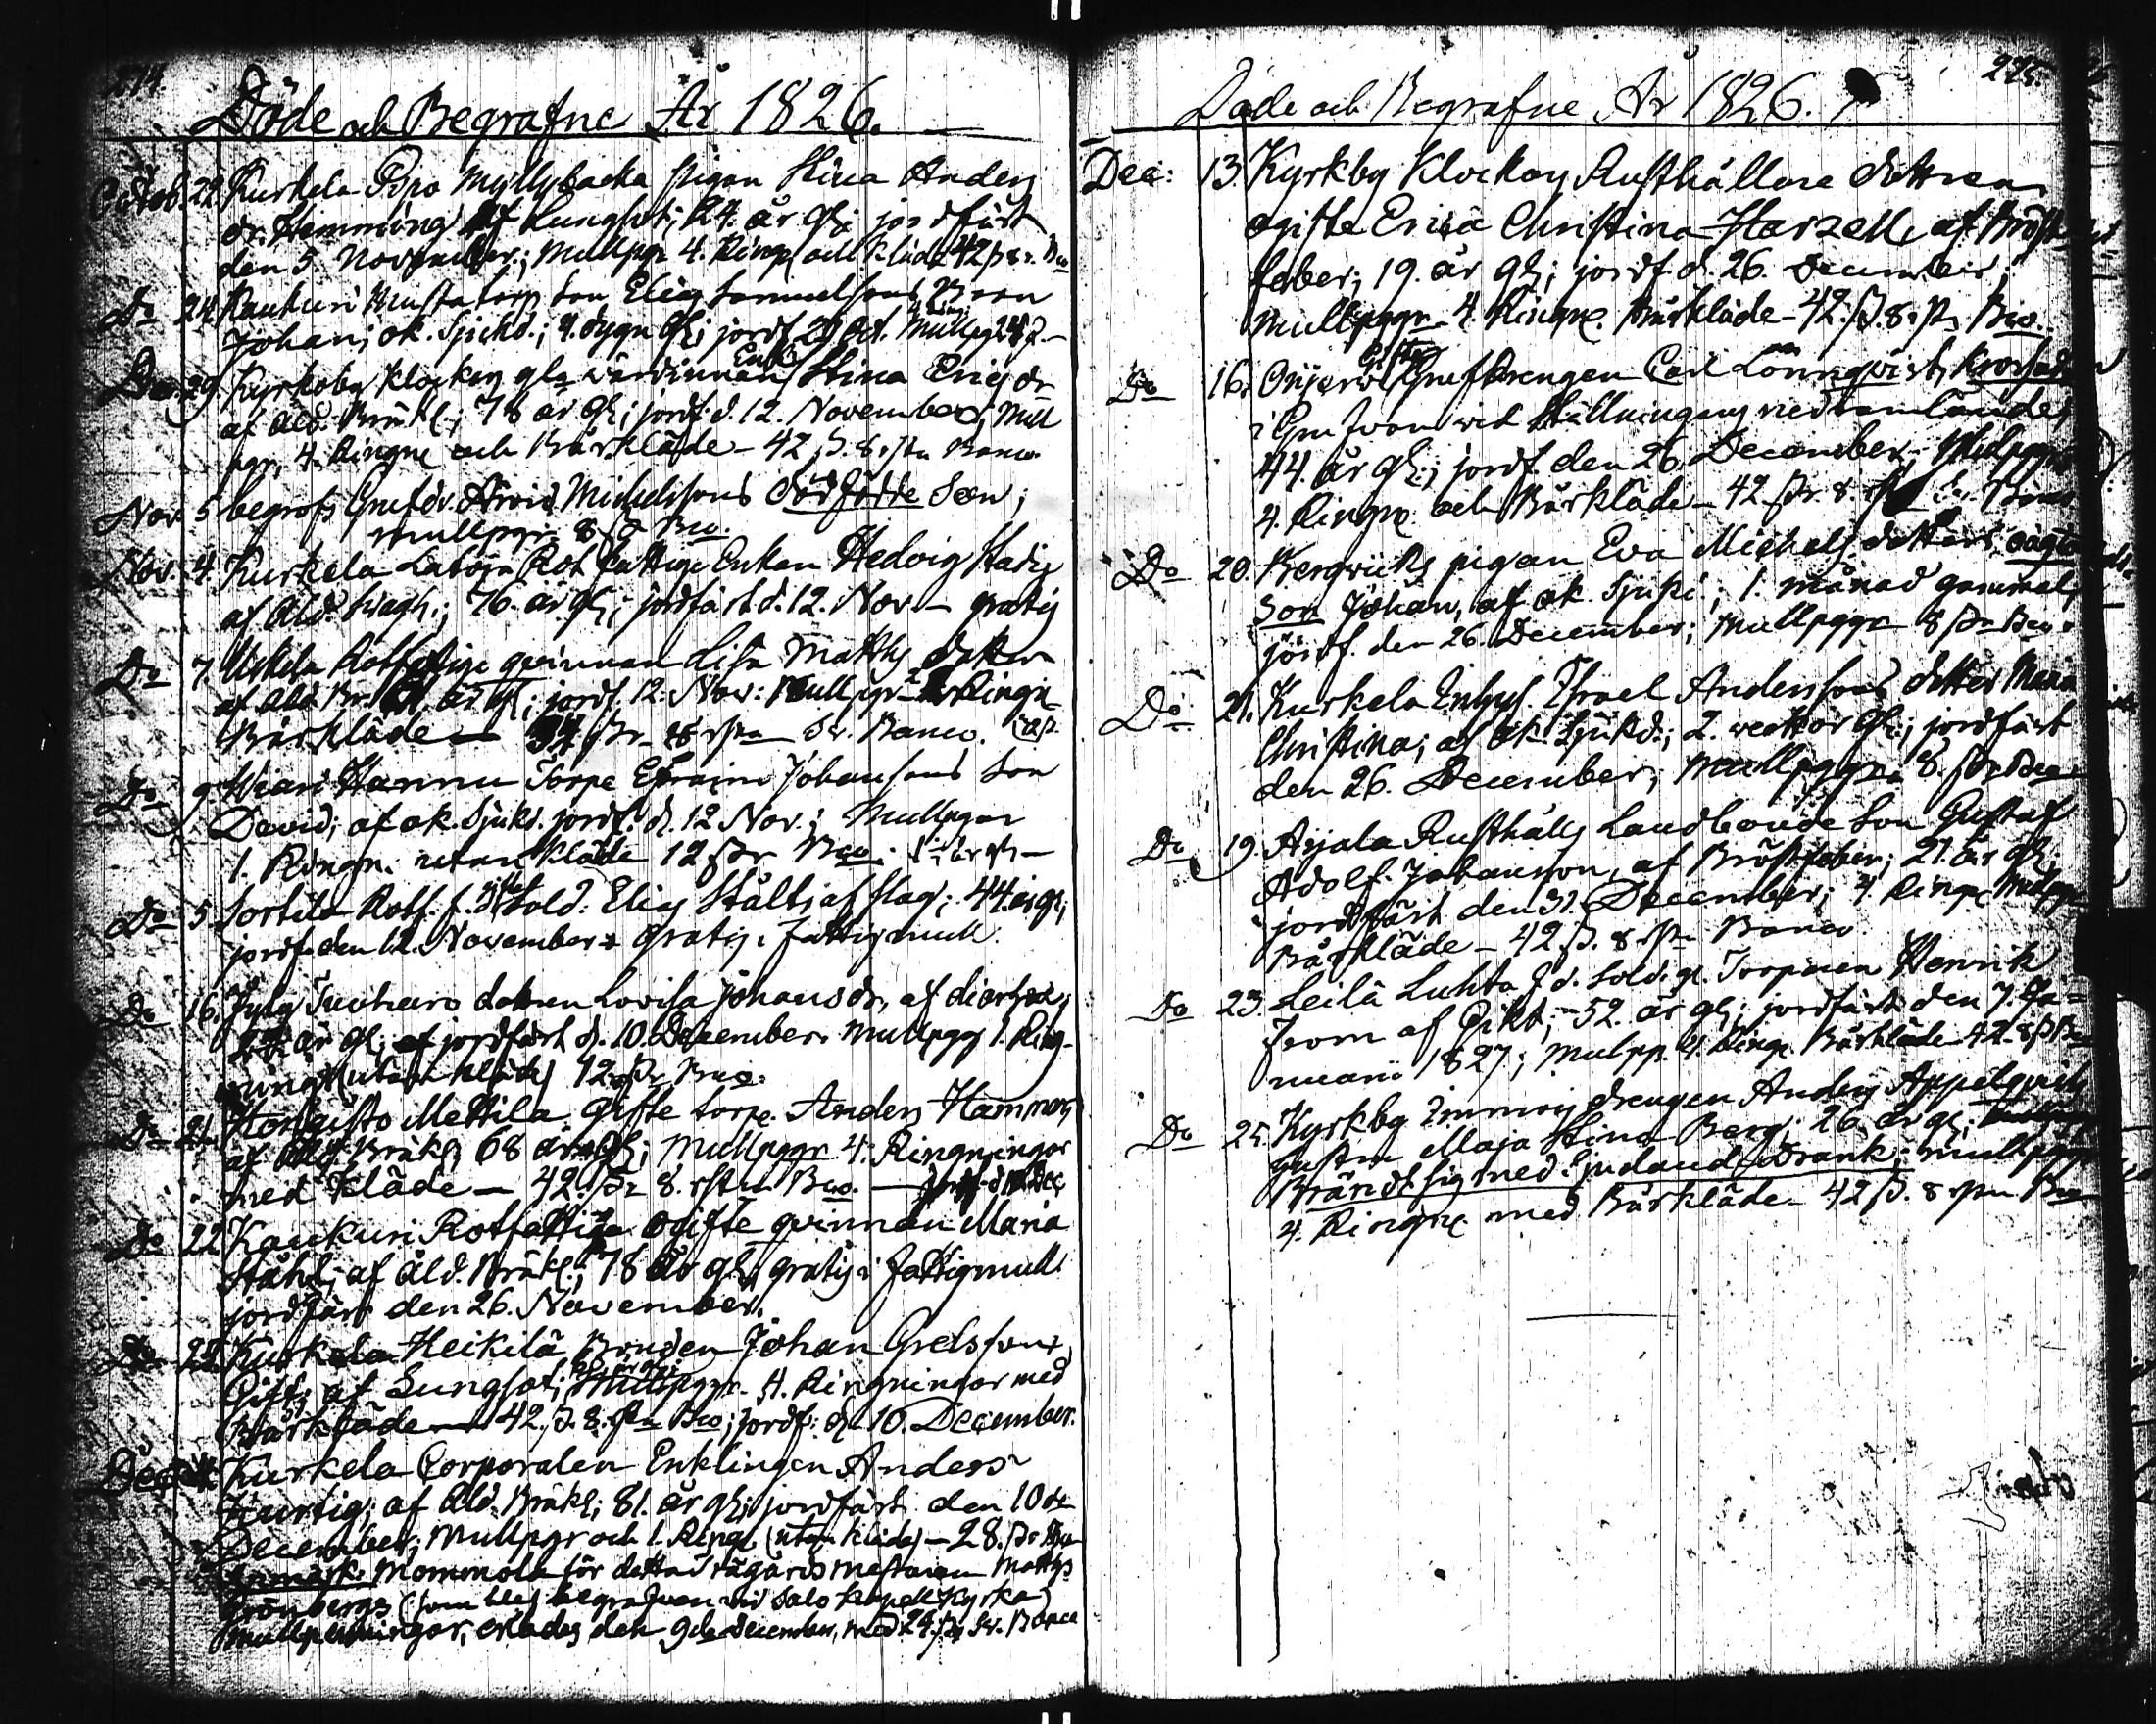 274.
Döde och Begrafne År 1826.
Octob. 22. Kurkela Pijan Stina Anders
dr. Hemming af Lungsot; 24. år gl; jordfäst
den 5. November; Mullpgr 4. Ringn och Kläde 42 ß 8 r. Bco
Do 24. Kaukuri torp Son Elias Samuelsons Barn
Johan; ok. Sjukd.; 9. dygn gl; jordf. 29 Oct.
Do 29. Kyrkoby Klockars gla wärdinnan Enk. Stina Ericsdr
af Åld. Bräkl.; 78 år gl; jordf. d. 12. November; Mull
pgr, 4. Ringn och Bårkläde - 42 ß. 8. rst. Banco
Nov. 5 begrofs Grufdr. Arvid Michelssons dödfödde Son;
Mullpgr. 8 ß Bco.
Nov. 4 Kurkela Rotfattige Enkan Hedvig Stadig
af Åld. Svagh.; 76. år gl; jordfäst d. 12. Nov - gratis
Do 7 Uskela Rotfattige qvinnan Lisa Matts dotter
af Åld. Br. år gl; jordf. 12. Nov: Mullpgr Ringn
Bårkläde 34 ßr 8 rst Sv. Banco.
Do 9 Wiari Hannu Torpe Efraim Johansons Son
David; af ok. Sjukd. jordf. d. 12 Nov.; Mullpgar
1. Ringn. utan Kläde 12 ßr Bco.
Do 5 Sortila Rotf. f. gifte Sold. Elias Stålt; af slag; 44. år gl;
jordf. den 12. November gratis i fattigmull.
Do 16. Jylg dottren Lovisa Johansdr, af diarhé;
år gl; jordfäst d. 10. December. Mullpgg 1. Ring-
ning (utan kläde) 12 ßr Bco.
Do 21. Mettila gifte torpe. Anders Hammar
af Åld. Bräkl. 68 år gl; Mullpgr 4. Ringningar
med Kläde - 42. ßr 8. rst Bco. - jordf. d. 10 Dec
Do 22 Kaukuri Rotfattiga ogifte qvinnan Maria
Ståhl; af åld. Bräkl.; 78 år gl; gratis i fattigmull
jordfäst den 26. November.
Do 22. Kurkela Heikilä Bonden Johan Grelsson
Gift; af Lungsot; Mullpgr. 4. Ringningar med
Bårkläde 42. ß. 8. rst Bco; jordf: d. 10. December.
Dec. 4. Kurkela Corporalen Enklingen Anders
Hurtig; af Åld. Bräkl; 81. år gl; jordfäst den 10de
December; Mullpgr och 1. Ringn. (utan kläde) - 28. ßr Bco
Anmärk. Mommola för detta Trägårdsmestaren Matts
Grönbergs (som blef begrafven vid Salo Kapell Kyrka)
Mullpenningar, erlades den 9de December, med 24. ßr Sv. Banco
275.
Döde och Begrafne År 1826.
Dec: 13. Kyrkby Klockars Rusthållare dottren
ogifte Erica Christina Harzell, af Bröst
feber; 19. år gl; jordf. d. 26. December;
Mullpggr 4. Ringn. Bårkläde - 42. ß. 8. r. Bco.
Do 16. Orijerwi Gifte Grufdrengen Carl Lönnqvist, krossad
i Grufwan vid Ställningens nedramlande;
44. år gl; jordf. den 26. December; Mullpggr
4. Ringn. och Bårkläde - 42 ßr. 8.
Do 20. Bergwiks pigan Eva Michelsdotters oägta
Son Johan, af ok. Sjukd.; 1. månad gammal;
jordf. den 26. December; Mullpggr 8 ßr Bco.
Do 21. Kurkela Inhys. Israel Anderssons dotter Maria
Christina; af ok. Sjukd.; 2. weckor gl; jordfäst
den 26. December; Mullpggr 8. ßr Bco
Do 19. Arjala Rusthålls Landbonde Son Gustaf
Adolf Johansson, af Bröstfeber; 21. år gl;
jordfäst den 31. December; 4. Ringn. Mullpgr
Bårkläde - 42. ß. 8. rst Banco.
Do 23. Leilä Luhta f. d. Sold. gl. Torparen Henrik
From af Gikt; 52. år gl; jordfäst den 7. Ja-
nuarii 1827; Mulpp. 4. Ringn. Bårkläde 42. 8 ß Bco
Do 25. Kyrkby drengen Anders Appelqvists
hustru Maja Stina Berg; 26. år gl;
Brändt sig med sjudande Drank; mullpgg
4. Ringn. med Bårkläde - 42 ß. 8 rst. Bco